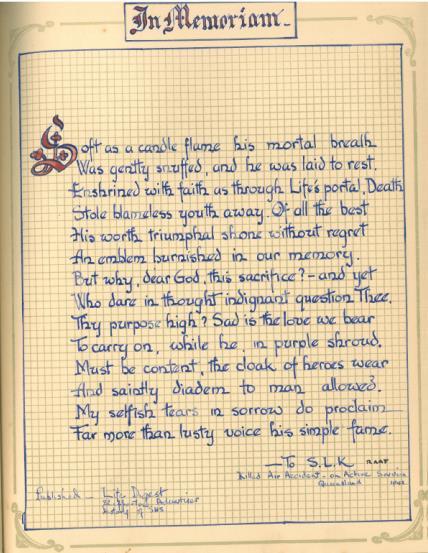 In Memoriam
Soft as a candle flame his mortal breath
Was gently snuffed, and he was laid to rest.
Enshrined with faith as through Life's portal, Death
Stole blameless youth away. Of all the best
His worth triumphal shone without regret
An emblem burnished in our memory.
But why, dear God, this sacrifice? - and yet
Who dare in thought indignant question Thee.
Thy purpose high? Sad is the love we bear
To carry on, while he, in purple shroud.
Must be content, the cloak of heroes wear
And saintly diadem to man allowed.
My selfish tears in sorrow do proclaim
Far more than lusty voice his simple fame.
— To S.L.K RAAF
Killed Air Accident - on Active Service
Queensland
Published - Life Digest